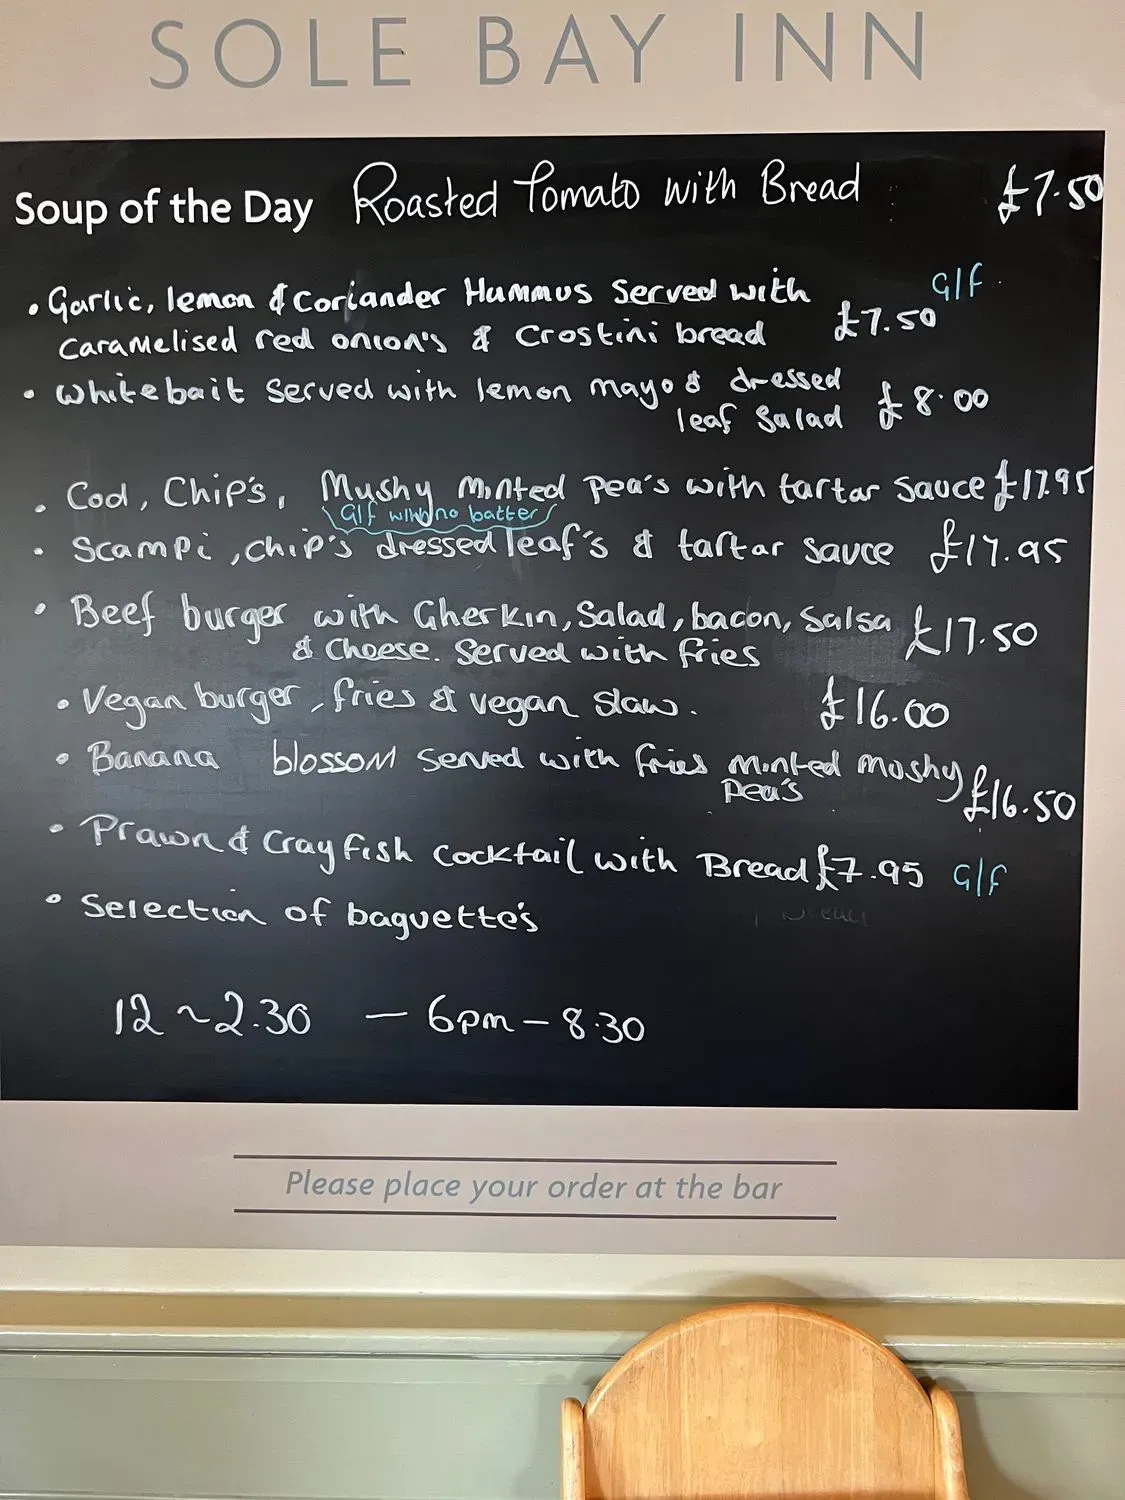 SOLE BAY INN
Soup of the Day Roasted Tomato with Bread £7.50
• Garlic, lemon & Coriander Hummus Served with G/f
Caramelised red onion's & Crostini bread £7.50
• Whitebait Served with lemon mayo & dressed
leaf Salad £8.00
• Cod, Chip's, Mushy Minted Pea's with tartar Sauce £17.95
G/f with no batter
• Scampi, chip's dressed leaf's & tartar sauce £17.95
• Beef burger with Gherkin, Salad, bacon, Salsa £17.50
& Cheese. Served with fries
• Vegan burger, fries & vegan slaw. £16.00
• Banana blossom Served with fries Minted mushy
Pea's £16.50
• Prawn & Crayfish Cocktail with Bread £7.95 G/f
• Selection of baguette's
12 ~ 2.30 — 6pm – 8.30
Please place your order at the bar